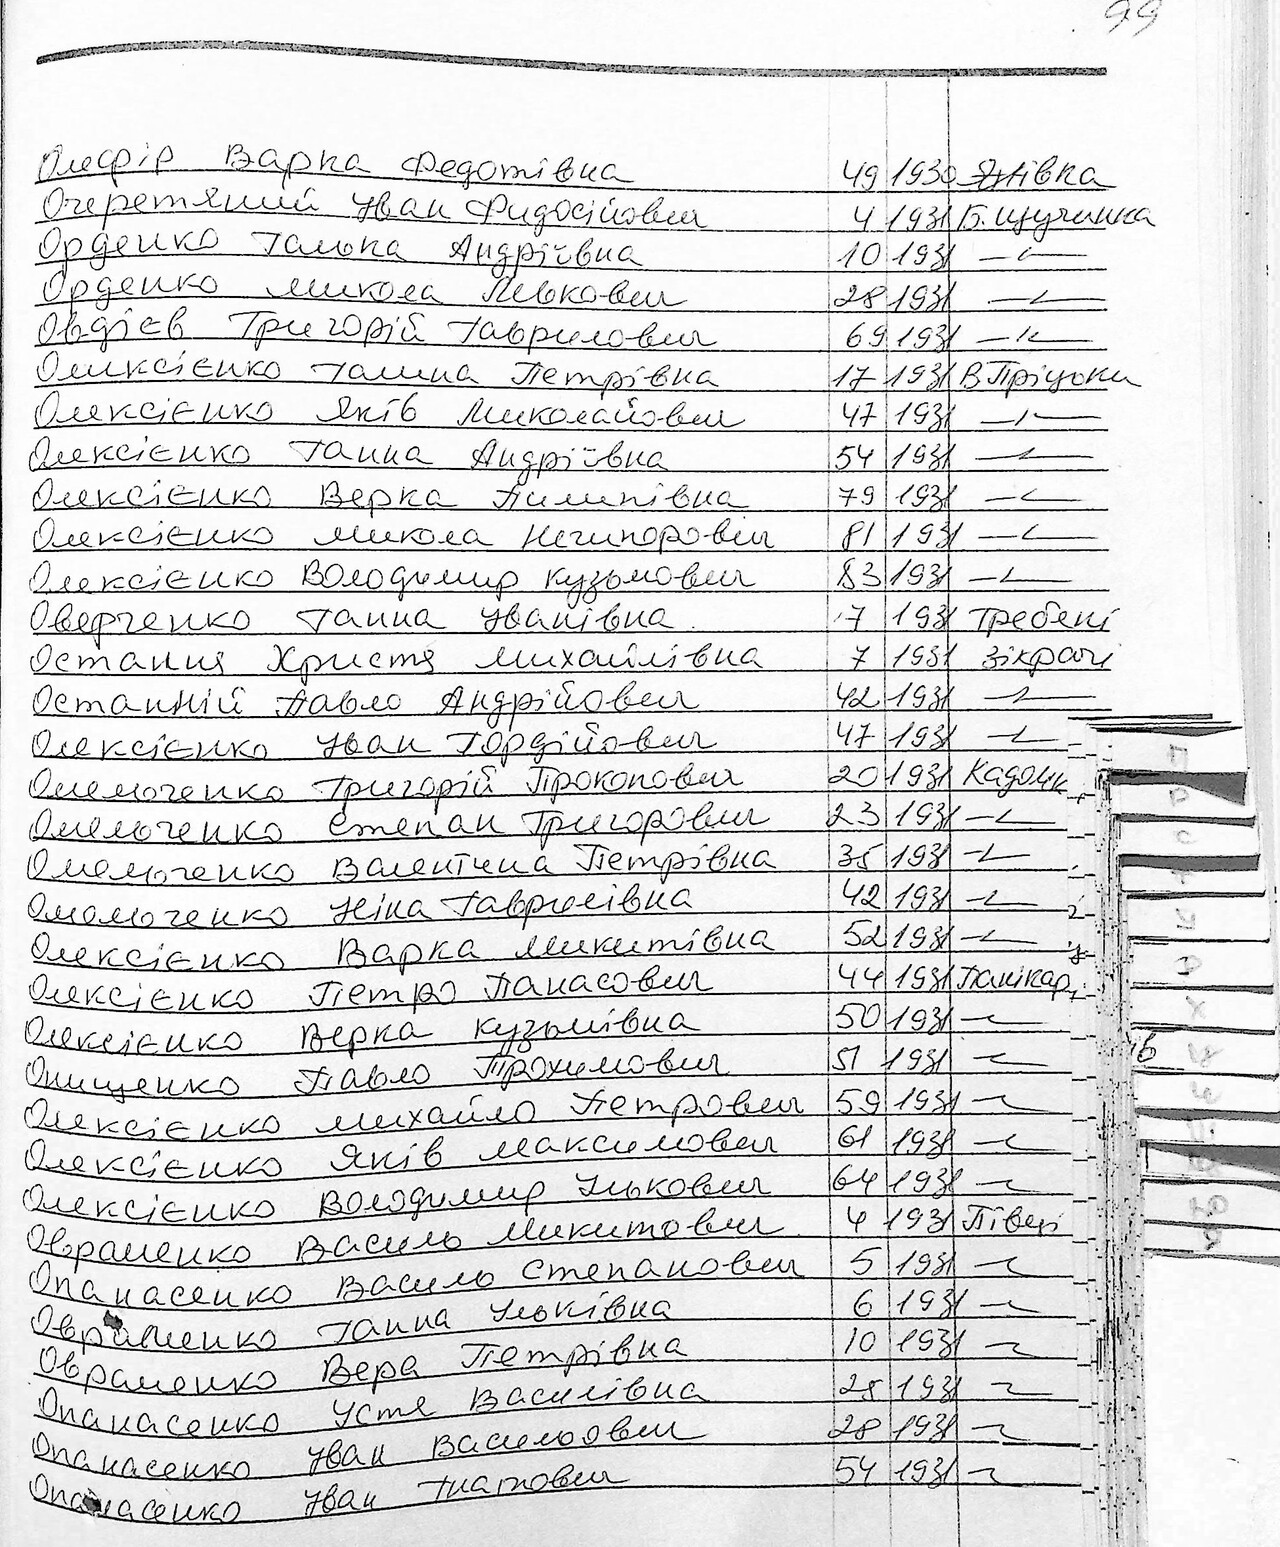 99
Олефір Варка Федотівна 49 1930 Янівка
Очеретяний Иван Фидосійович 4 1931 Б. Щучинка
Орденко Галька Андріївна 10 1931 —"—
Орденко Микола Левкович 28 1931 —"—
Овдієв Григорій Гаврилович 69 1931 —"—
Оликсієнко Галина Петрівна 17 1931 В Пріцьки
Олексієнко Яків Миколайович 47 1931 —"—
Олексієнко Ганна Андріївна 54 1931 —"—
Олексієнко Верка Пилипівна 79 1931 —"—
Олексієнко Микола Нечипорович 81 1931 —"—
Олексієнко Володимир Кузьмович 83 1931 —"—
Оверченко Ганна Иванівна 7 1931 Гребені
Остання Христя Михайлівна 7 1931 Зікрачі
Останній Павло Андрійович 42 1931 —"—
Олексієнко Иван Гордійович 47 1931 —"—
Омельченко Григорій Прокопович 20 1931 Кадомк
Омельченко Степан Григорович 23 1931 —"—
Омельченко Валентина Петрівна 35 1931 —"—
Омельченко Ніна Гаврилівна 42 1931 —"—
Олексієнко Варка Микитівна 52 1931 —"—
Олексієнко Петро Панасович 44 1931 Панікар
Олексієнко Верка Кузьмівна 50 1931 —"—
Онищенко Павло Трохимович 51 1931 —"—
Олексієнко Михайло Петрович 59 1931 —"—
Олексієнко Яків Максимович 61 1931 —"—
Олексієнко Володимир Илькович 64 1931 —"—
Овраменко Василь Микитович 4 1931 Півці
Опанасенко Василь Степанович 5 1931 —"—
Овраменко Ганна Ильківна 6 1931 —"—
Овраменко Вера Петрівна 10 1931 —"—
Опанасенко Устя Василівна 25 1931 —"—
Опанасенко Иван Васильович 28 1931 —"—
Опанасенко Иван Гнатович 54 1931 —"—